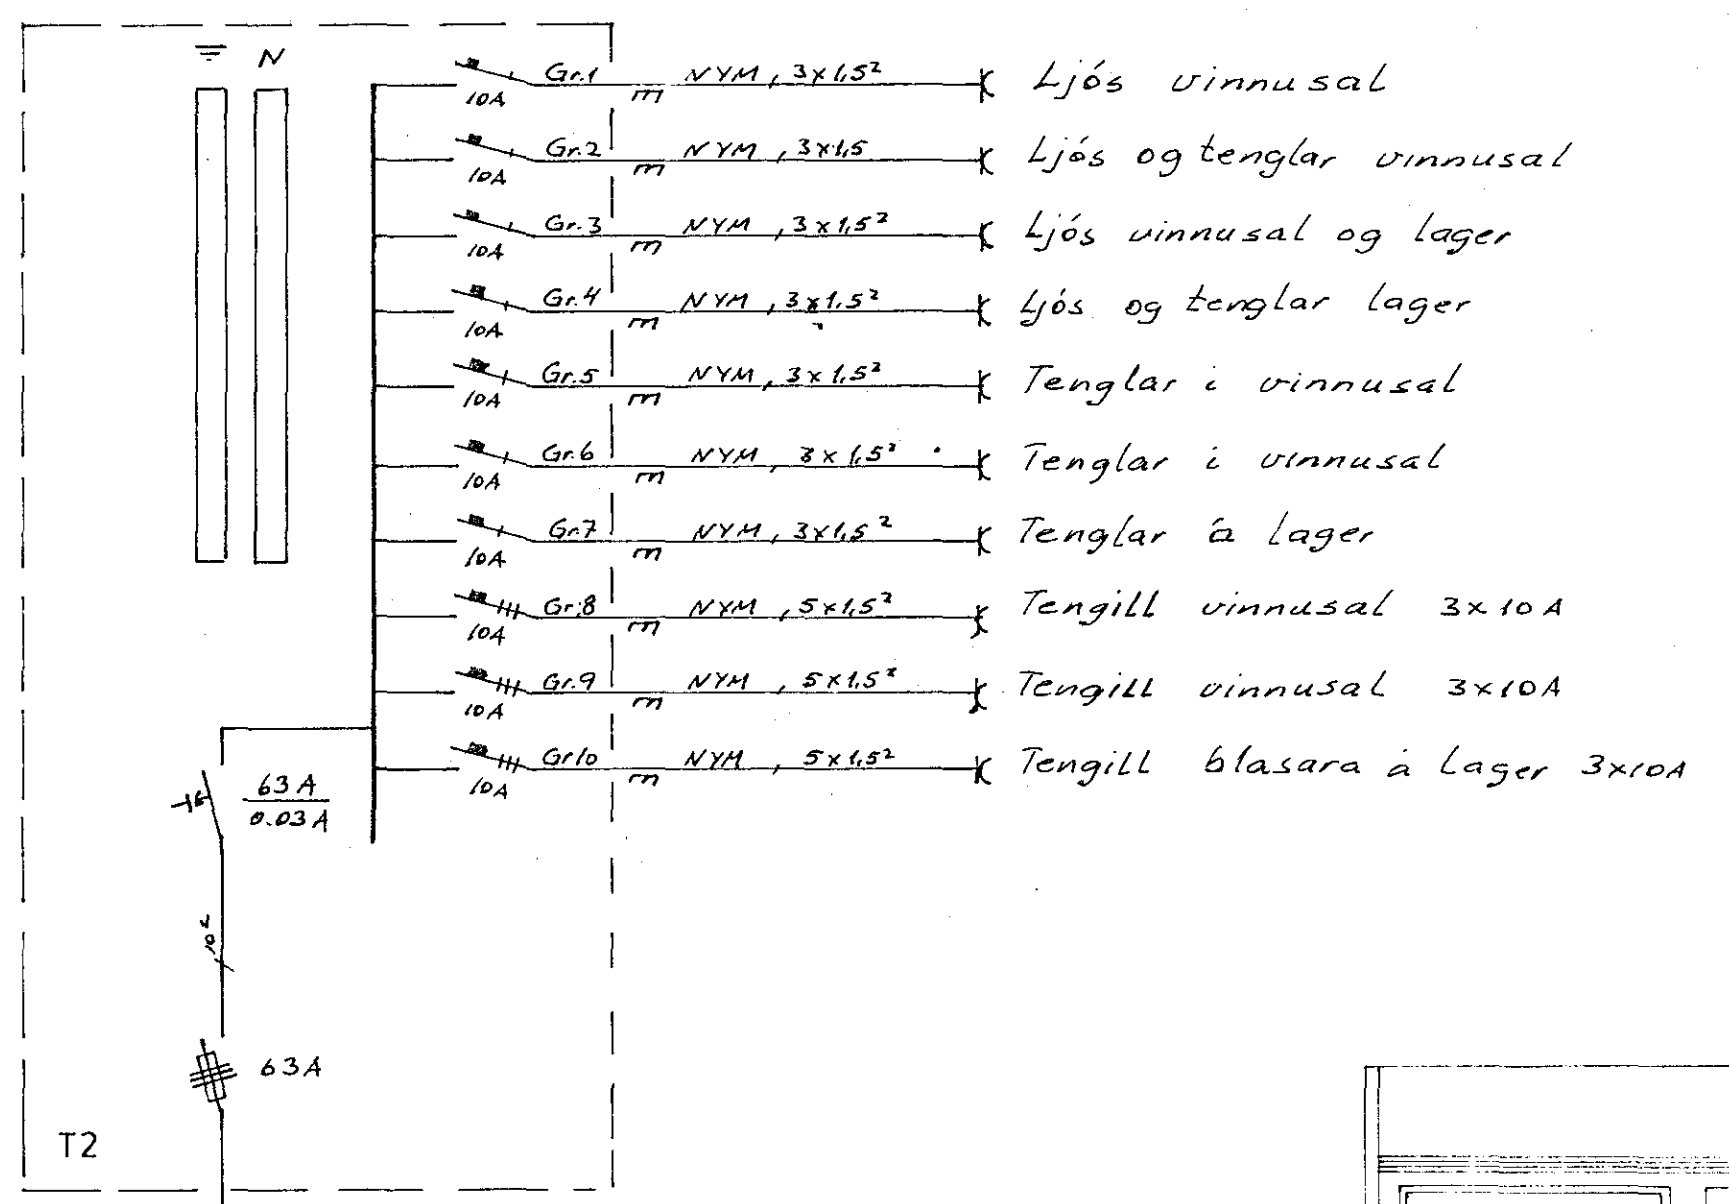 N
Gr.1 NYM, 3x1,5² Ljós vinnusal
10A
Gr.2 NYM, 3x1,5 Ljós og tenglar vinnusal
10A
Gr.3 NYM, 3x1,5² Ljós vinnusal og lager
10A
Gr.4 NYM, 3x1.5² Ljós og tenglar lager
10A
Gr.5 NYM, 3x1.5² Tenglar i vinnusal
10A
Gr.6 NYM, 3x1,5² Tenglar i vinnusal
10A
Gr.7 NYM, 3x1,5² Tenglar á lager
10A
Gr.8 NYM, 5x1,5² Tengill vinnusal 3x10A
10A
Gr.9 NYM, 5x1.5² Tengill vinnusal 3x10A
10A
Gr10 NYM, 5x1,5² Tengill blasara á lager 3x10A
10A
63A
0.03A
10²
63A
T2